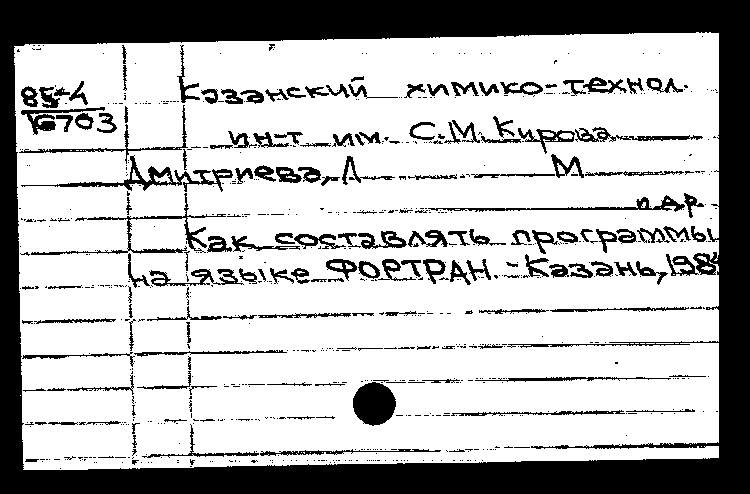 85-4
16703
Казанский химико-технол.
ин-т им. С.М. Кирова
Дмитриева, Л М
и др
Как составлять программы
на языке ФОРТРАН. - Казань, 1984